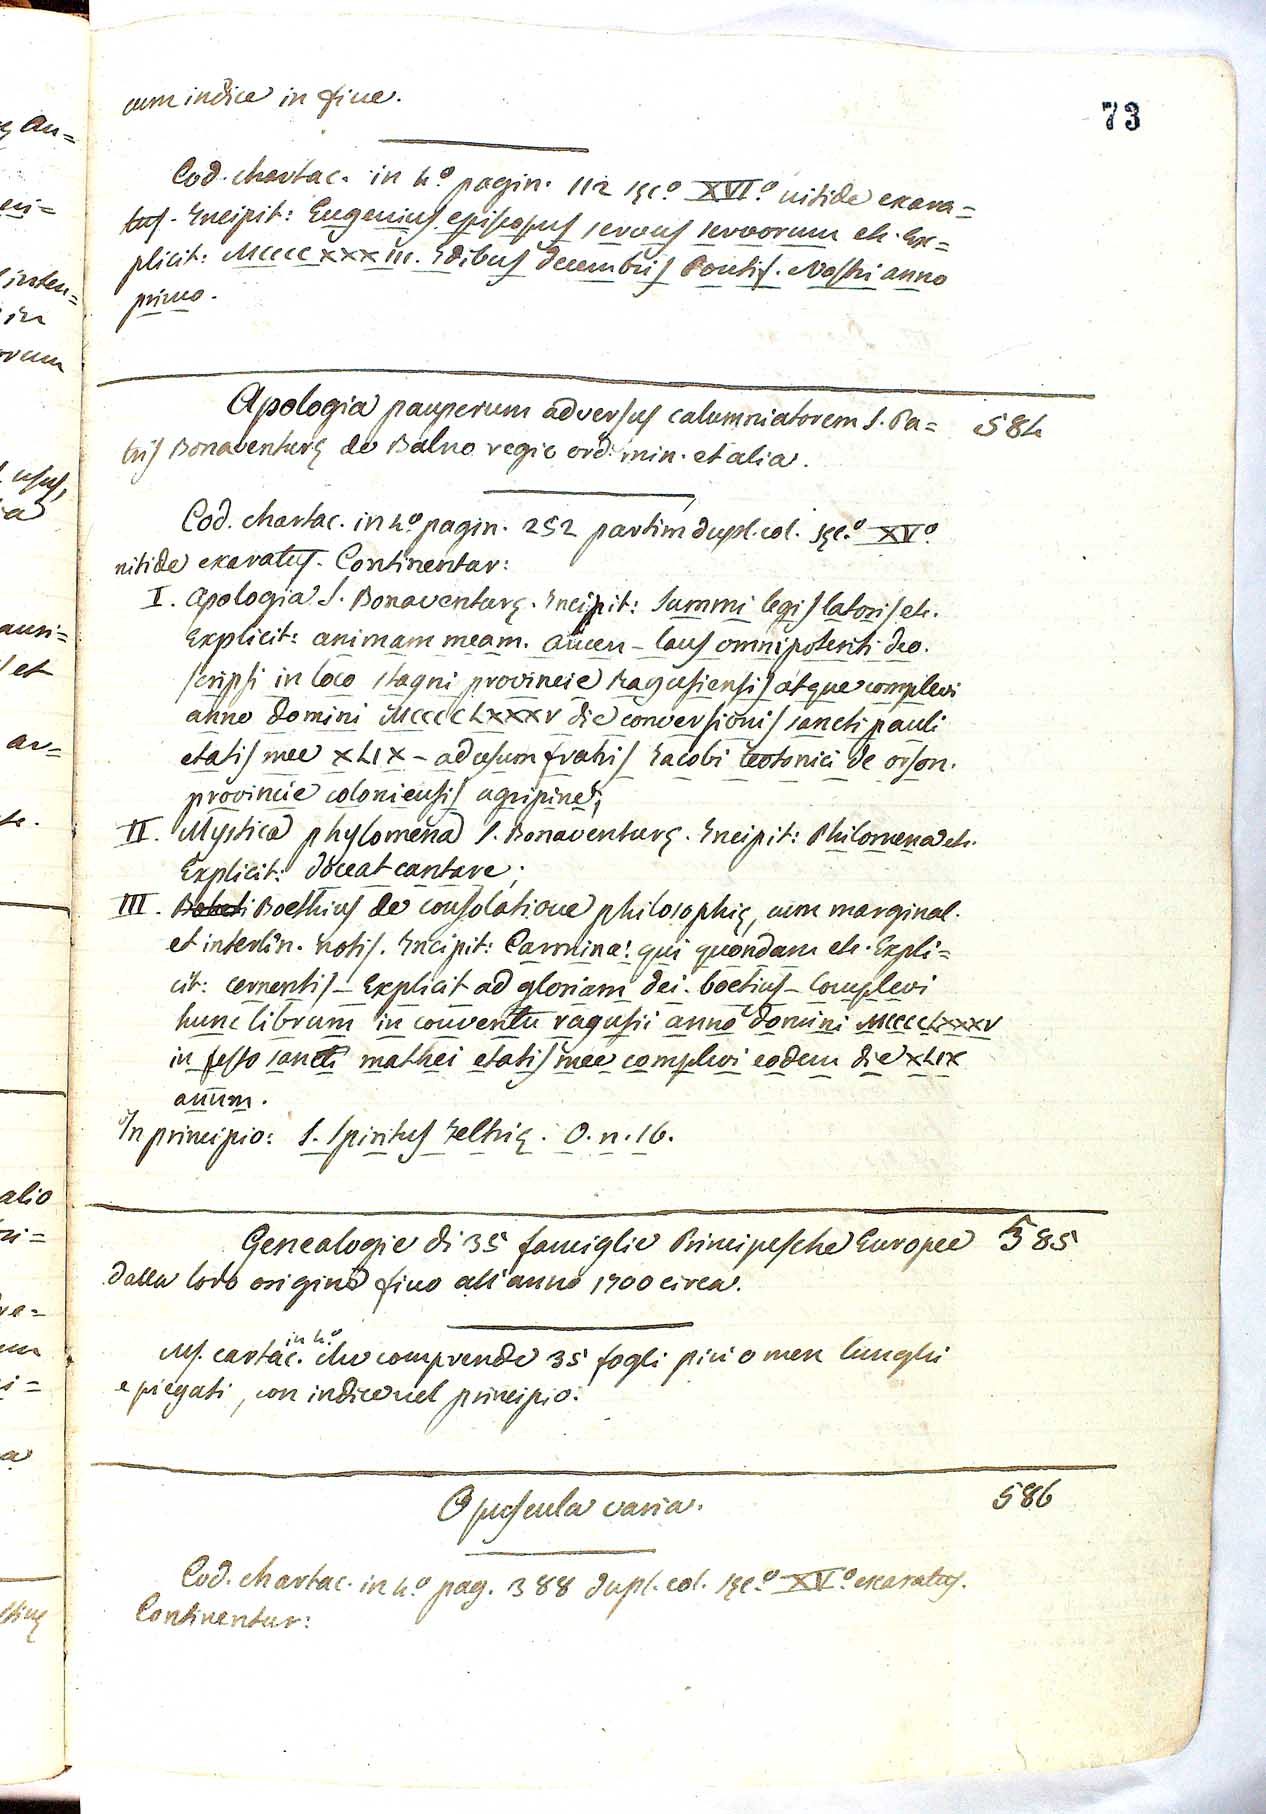 73
cum indice in fine.
Cod. chartac. in 4.º pagin. 112 sęc.º XVI.º nitide exara=
tus. Incipit: Eugenius episcopus servus servorum etc. Ex=
plicit: MccccxxxIII. Idibus decembris Pontif. Nostri anno
primo.
Apologia pauperum adversus calumniatorem S. Pa= 584
tris Bonaventurę de Balno regio ord. min. et alia.
Cod. chartac. in 4.º pagin. 252 partim dupl. col. sęc.º XV.º
nitide exaratus. Continentur:
I. Apologia S. Bonaventurę. Incipit: Summi legislatoris etc.
Explicit: animam meam. amen – laus omnipotenti deo.
scripsi in loco stagni provincie Ragusiensis atque complevi
anno domini MccccLxxxv die conversionis sancti pauli
etatis mee xLIx – ad usum fratris Iacobi teotonici de orson.
provincie coloniensis agripine;
II. Mystica phylomena S. Bonaventurę. Incipit: Philomena etc.
Explicit: doceat cantare;
III. Boethius de consolatione philosophię, cum marginal.
et interlin. notis. Incipit: Carmina: qui quondam etc. Expli=
cit: cernentis – Explicit ad gloriam dei. boetius – Complevi
hunc librum in conventu ragusii anno domini MccccLxxxv
in festo sancti mathei etatis mee complevi eodem die xLIx
annum.
In principio: S. Spiritus Feltrię. O. n. 16.
Genealogie di 35 famiglie Principesche Europee 585
dalla loro origine fino all'anno 1700 circa.
in 4.º
Ms. cartac. che comprende 35 fogli più o men lunghi
e piegati, con indice nel principio.
Opuscula varia. 586
Cod. chartac. in 4.º pag. 388 dupl. col. sęc.º XV.º exaratus.
Continentur: